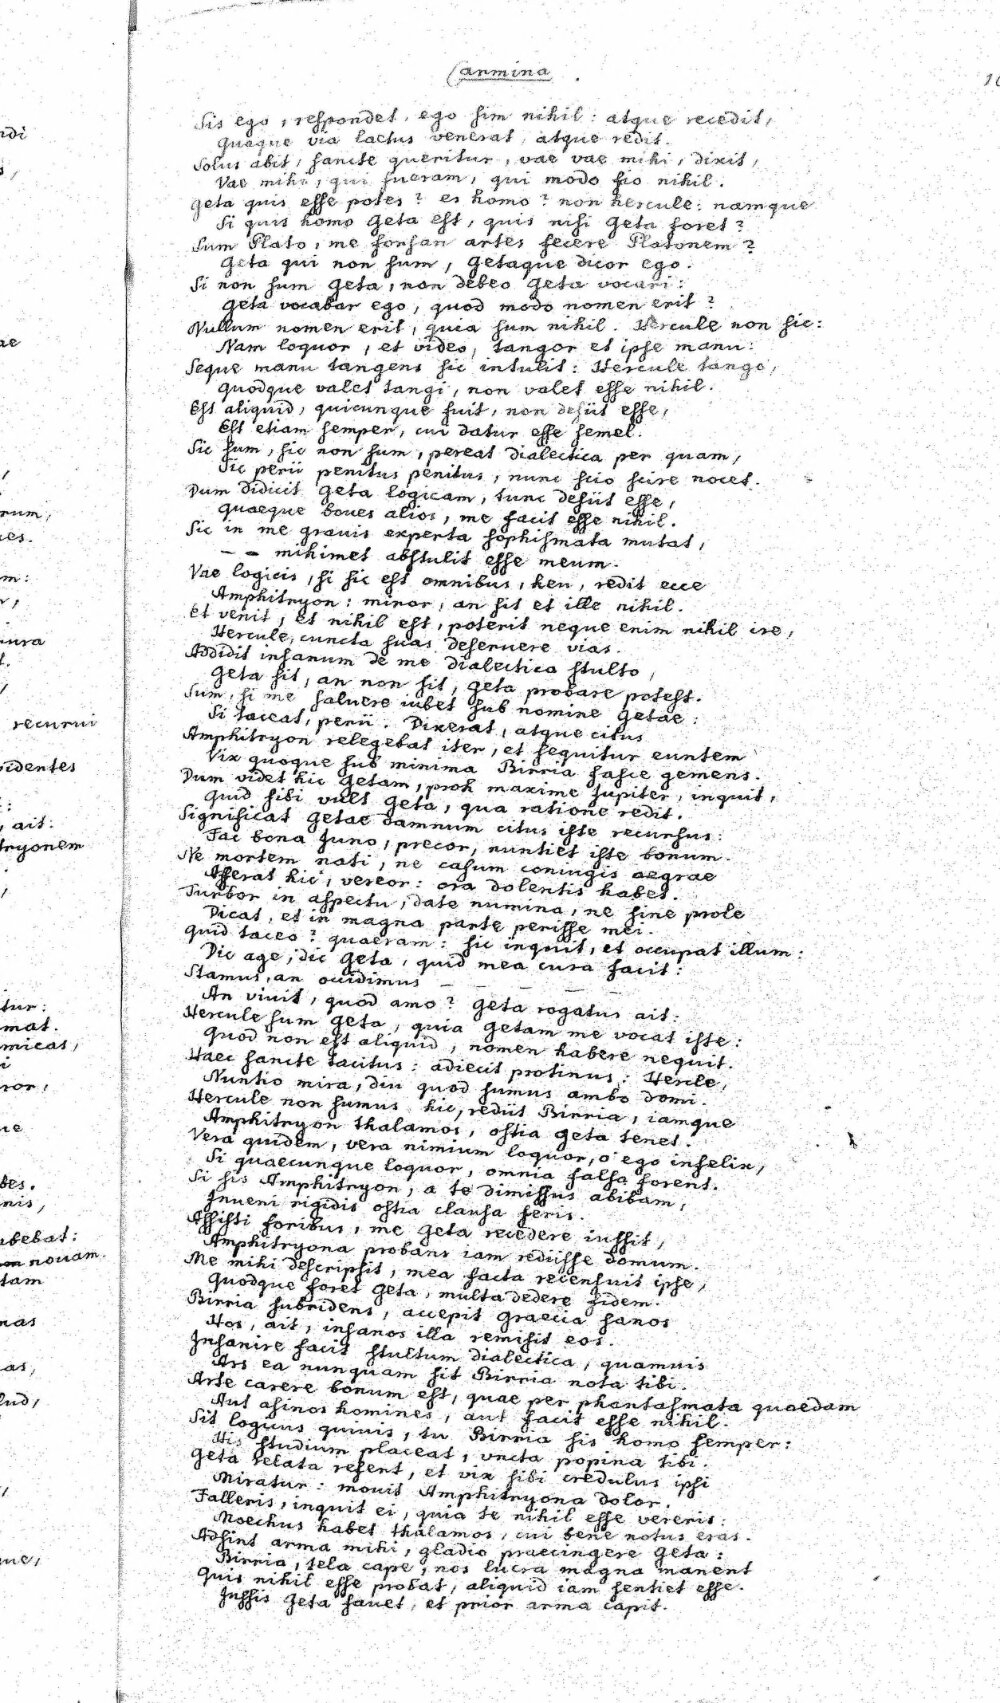 Carmina.
Sis ego, respondet, ego sim nihil: atque recedit,
Quaque via laetus venerat, atque redit.
Solus abit, sancte queritur, vae vae mihi, dixit,
Vae mihi, qui fueram, qui modo sio nihil.
Geta quis esse potes? es homo? non hercule: namque
Si quis homo Geta est, quis nisi Geta foret?
Sum Plato, me forsan artes fecere Platonem?
Geta qui non sum, Getaque dicor ego.
Si non sum Geta, non debeo Geta vocari:
Geta vocabar ego, quod modo nomen erit?
Nullum nomen erit, quia sum nihil. Hercule non sic:
Nam loquor, et video, tangor et ipse manu:
Seque manu tangens sic intulit: Hercule tango,
Quodque valet tangi, non valet esse nihil.
Est aliquid, quicunque fuit, non desiit esse,
Est etiam semper, cui datur esse semel.
Sic sum, sic non sum, pereat dialectica per quam,
Sic perii penitus penitus, nunc scio scire nocet.
Dum didicit Geta logicam, tunc desiit esse,
Quaeque boues alios, me facit esse nihil.
Sic in me grauis experta sophismata mutat,
– – mihimet abstulit esse meum.
Vae logicis, si sic est omnibus, heu, redit ecce
Amphitryon: minor, an sit et ille nihil.
Et venit, et nihil est, poterit neque enim nihil ire,
Hercule, cuncta suas deseruere vias.
Addidit insanum de me dialectica stulto,
Geta sit, an non sit, Geta probare potest.
Sum, si me saluere iubet sub nomine Getae:
Si taceat, perii. Dixerat, atque citus
Amphitryon relegebat iter, et sequitur euntem
Vix quoque sub minima Birria fasce gemens.
Dum videt hic Getam, proh maxime Jupiter, inquit,
Quid sibi vult Geta, qua ratione redit.
Significat Getae damnum citus iste recursus:
Fac bona Juno, precor, nuntiet iste bonum.
Ne mortem nati, ne casum coniugis aegrae
Afferat hic, vereor: ora dolentis habet.
Turbor in aspectu, date numina, ne sine prole
Dicat, et in magna parte perisse mei.
Quid taceo? quaeram: sic inquit, et occupat illum:
Dic age, dic Geta, quid mea cura facit:
Stamus, an occidimus – – – – –
An viuit, quod amo? Geta rogatus ait:
Hercule sum Geta, quia Getam me vocat iste:
Quod non est aliquid, nomen habere nequit.
Haec sancte tacitus: adiecit protinus: Hercle,
Nuntio mira, diu quod sumus ambo domi.
Hercule non sumus hic, rediit Birria, iamque
Amphitryon thalamos, ostia Geta tenet.
Vera quidem, vera nimium loquor, o ego infelix,
Si quaecunque loquor, omnia falsa forent.
Si sis Amphitryon, a te dimissus abibam,
Inueni rigidis ostia clausa feris.
Assisti foribus, me Geta recedere iussit,
Amphitryona probans iam rediisse domum.
Me mihi descripsit, mea facta recensuit ipse,
Quodque foret Geta, multa dedere fidem.
Birria subridens, accepit Graecia sanos
Hos, ait, insanos illa remisit eos.
Insanire facit stultum dialectica, quamuis
Ars ea nunquam sit Birria nota tibi.
Arte carere bonum est, quae per phantasmata quaedam
Aut asinos homines, aut facit esse nihil.
Sit logicus quiuis, tu Birria sis homo semper:
His studium placeat, vncta popina tibi.
Geta relata refert, et vix sibi credulus ipsi
Miratur: mouit Amphitryona dolor.
Falleris, inquit ei, quia te nihil esse vereris:
Moechus habet thalamos, cui bene notus eras.
Adsint arma mihi, gladio praecingere Geta:
Birria, tela cape, nos lucra magna manent
Quis nihil esse probat, aliquid iam sentiet esse.
Jussis Geta fauet, et prior arma capit.